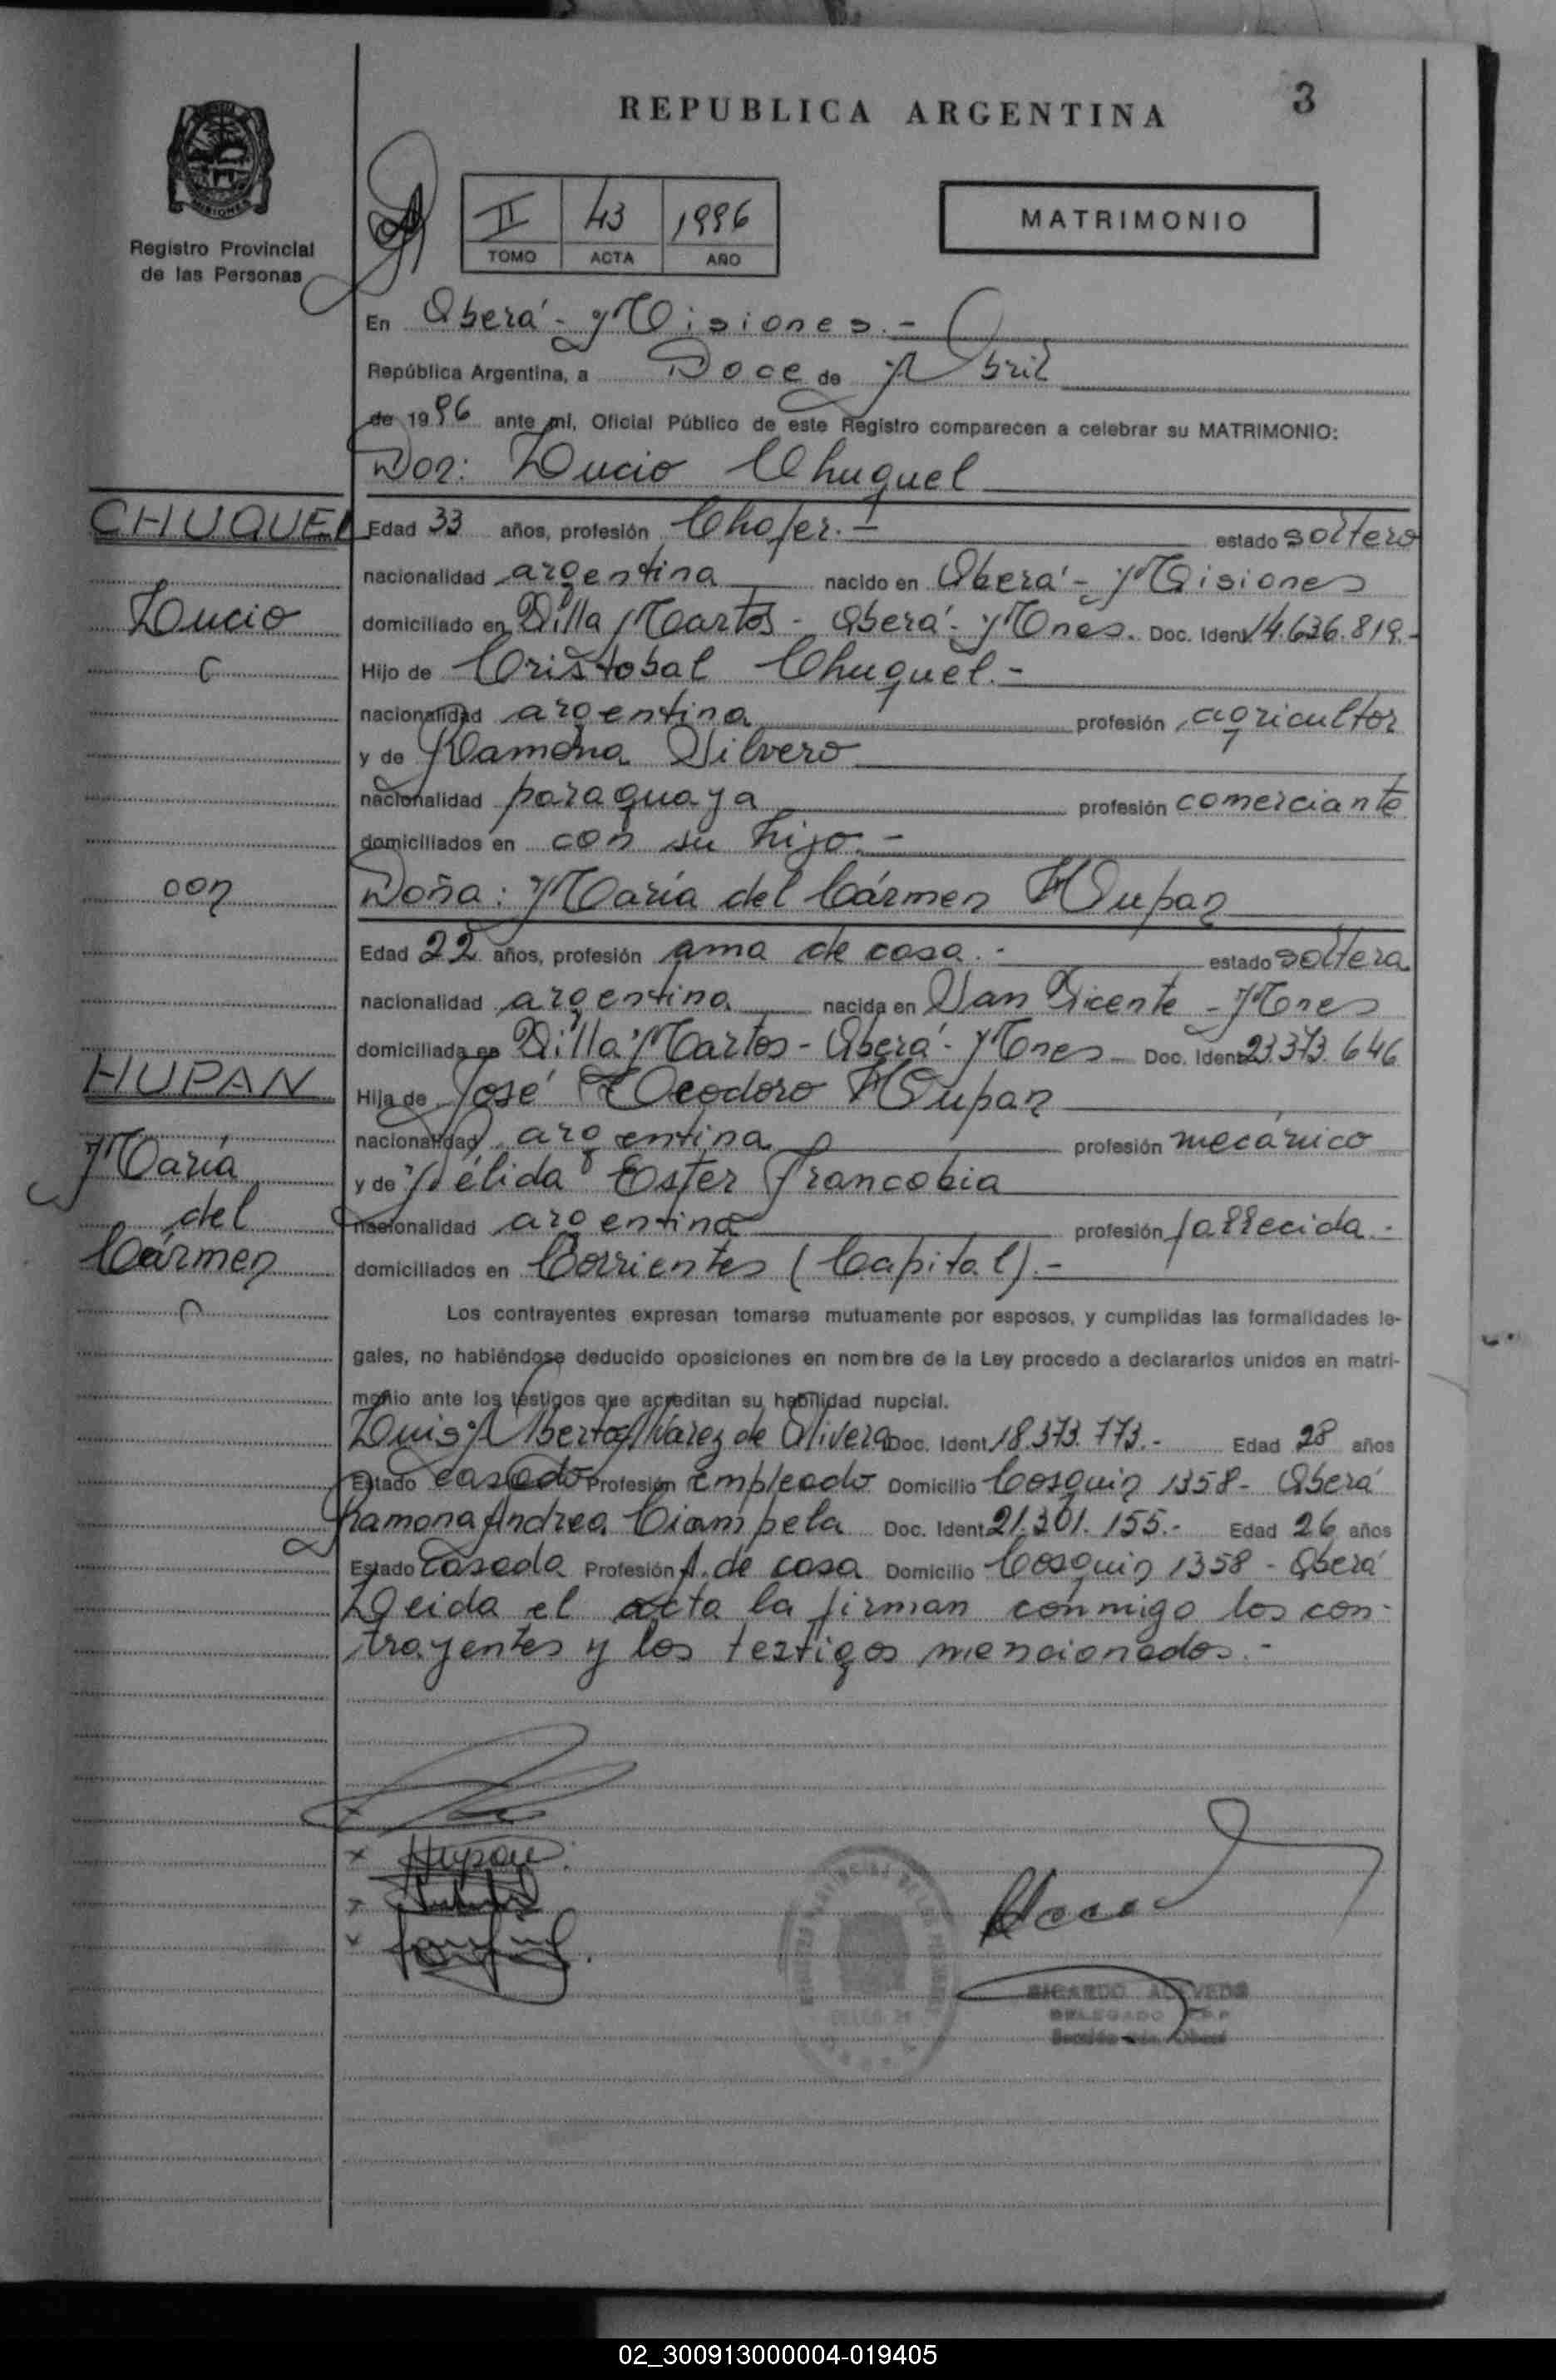 REPUBLICA ARGENTINA
3
MISIONES
Registro Provincial
de las Personas
II 43 1996
TOMO ACTA AÑO
MATRIMONIO
En Oberá - Misiones.-
República Argentina, a Doce de Abril
de 1996 ante mi, Oficial Público de este Registro comparecen a celebrar su MATRIMONIO:
Don: Lucio Chuquel
CHUQUEL
Lucio
con
HUPAN
María
del
Cármen
Edad 33 años, profesión Chofer.- estado soltero
nacionalidad argentina nacido en Oberá - Misiones
domiciliado en Villa Martos - Oberá - Mnes. Doc. Ident. 14.636.819.-
Hijo de Cristobal Chuquel.-
nacionalidad argentina profesión agricultor
y de Ramona Silvero
nacionalidad paraguaya profesión comerciante
domiciliados en con su hijo.-
Doña: María del Cármen Hupan
Edad 22 años, profesión ama de casa.- estado soltera
nacionalidad argentina nacida en San Vicente - Mnes
domiciliada en Villa Martos - Oberá - Mnes Doc. Ident. 23.373.646
Hija de José Teodoro Hupan
nacionalidad argentina profesión mecánico
y de Nélida Ester Francobia
nacionalidad argentina profesión fallecida.-
domiciliados en Corrientes (Capital).-
Los contrayentes expresan tomarse mutuamente por esposos, y cumplidas las formalidades le-
gales, no habiéndose deducido oposiciones en nombre de la Ley procedo a declararlos unidos en matri-
monio ante los testigos que acreditan su habilidad nupcial.
Luis Alberto Alvarez de Olivera Doc. Ident. 18.373.773.- Edad 28 años
Estado casado Profesión empleado Domicilio Cosquin 1358 - Oberá
Ramona Andrea Ciampela Doc. Ident. 21.301.155.- Edad 26 años
Estado casada Profesión A. de casa Domicilio Cosquin 1358 - Oberá
Leida el acta la firman conmigo los con-
trayentes y los testigos mencionados.-
Hupan
RICARDO ACEVEDO
DELEGADO
02_300913000004-019405